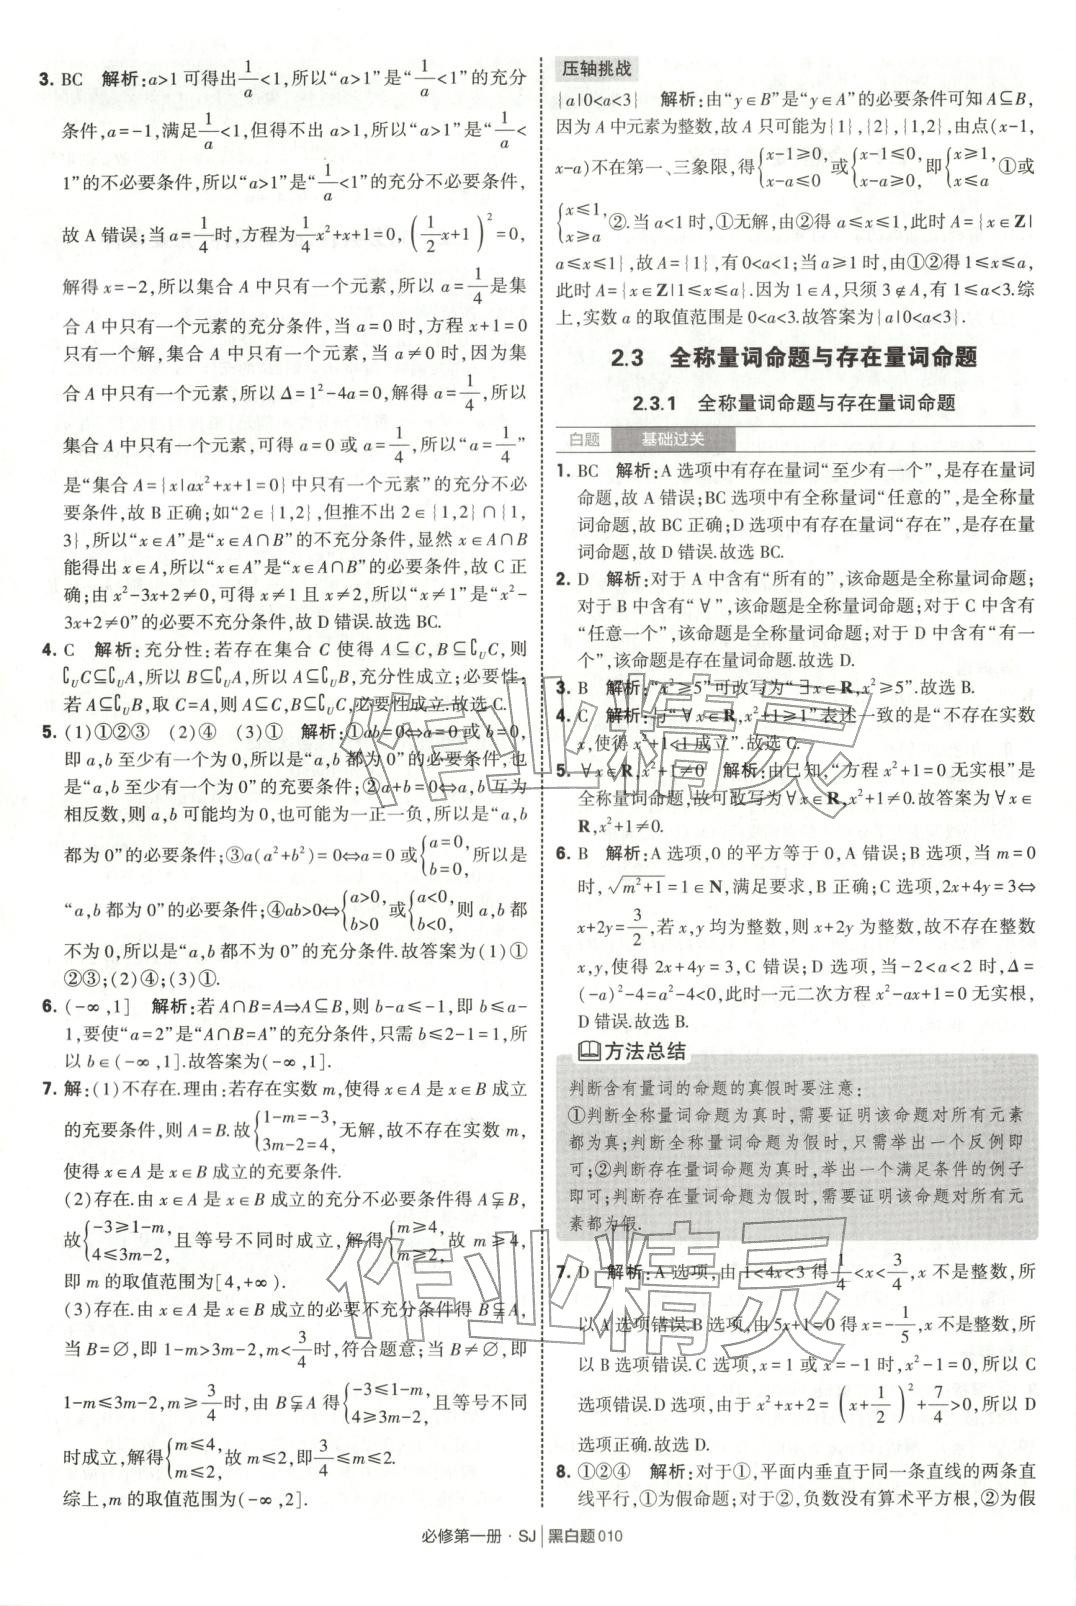 3. BC 解析:a>1 可得出1/a<1,所以“a>1”是“1/a<1”的充分
条件,a=-1,满足1/a<1,但得不出 a>1,所以“a>1”是“1/a<
1”的不必要条件,所以“a>1”是“1/a<1”的充分不必要条件,
故 A 错误;当 a=1/4时,方程为1/4x²+x+1=0,(1/2x+1)²=0,
解得 x=-2,所以集合 A 中只有一个元素,所以 a=1/4是集
合 A 中只有一个元素的充分条件,当 a=0 时,方程 x+1=0
只有一个解,集合 A 中只有一个元素,当 a≠0 时,因为集
合 A 中只有一个元素,所以 Δ=1²-4a=0,解得 a=1/4,所以
集合 A 中只有一个元素,可得 a=0 或 a=1/4,所以“a=1/4”
是“集合 A={x|ax²+x+1=0}中只有一个元素”的充分不必
要条件,故 B 正确;如“2∈{1,2},但推不出 2∈{1,2}∩{1,
3},所以“x∈A”是“x∈A∩B”的不充分条件,显然 x∈A∩B
能得出 x∈A,所以“x∈A”是“x∈A∩B”的必要条件,故 C 正
确;由 x²-3x+2≠0,可得 x≠1 且 x≠2,所以“x≠1”是“x²-
3x+2≠0”的必要不充分条件,故 D 错误.故选 BC.
4. C 解析:充分性:若存在集合 C 使得 A⊆C,B⊆∁UC,则
∁UC⊆∁UA,所以 B⊆∁UA,所以 A⊆∁UB,充分性成立;必要性:
若 A⊆∁UB,取 C=A,则 A⊆C,B⊆∁UC,必要性成立.故选 C.
5. (1)①②③ (2)④ (3)① 解析:①ab=0⇔a=0 或 b=0,
即 a,b 至少有一个为 0,所以是“a,b 都为 0”的必要条件,也
是“a,b 至少有一个为 0”的充分条件;②a+b=0⇔a,b 互为
相反数,则 a,b 可能均为 0,也可能为一正一负,所以是“a,b
都为 0”的必要条件;③a(a²+b²)=0⇔a=0 或{a=0, b=0,所以是
“a,b 都为 0”的必要条件;④ab>0⇔{a>0, b>0或{a<0, b<0,则 a,b 都
不为 0,所以是“a,b 都不为 0”的充分条件.故答案为(1)①
②③;(2)④;(3)①.
6. (-∞,1] 解析:若 A∩B=A⇒A⊆B,则 b-a≤-1,即 b≤a-
1,要使“a=2”是“A∩B=A”的充分条件,只需 b≤2-1=1,所
以 b∈(-∞,1].故答案为(-∞,1].
7. 解:(1)不存在.理由:若存在实数 m,使得 x∈A 是 x∈B 成立
的充要条件,则 A=B.故{1-m=-3, 3m-2=4,无解,故不存在实数 m,
使得 x∈A 是 x∈B 成立的充要条件.
(2)存在.由 x∈A 是 x∈B 成立的充分不必要条件得 A⫋B,
故{-3≥1-m, 4≤3m-2,且等号不同时成立,解得{m≥4, m≥2,故 m≥4,
即 m 的取值范围为[4,+∞).
(3)存在.由 x∈A 是 x∈B 成立的必要不充分条件得 B⫋A,
当 B=∅,即 1-m>3m-2,m<3/4时,符合题意;当 B≠∅,即
1-m≤3m-2,m≥3/4时,由 B⫋A 得{-3≤1-m, 4≥3m-2,且等号不同
时成立,解得{m≤4, m≤2,故 m≤2,即3/4≤m≤2.
综上,m 的取值范围为(-∞,2].
压轴挑战
{a|0<a<3} 解析:由“y∈B”是“y∈A”的必要条件可知 A⊆B,
因为 A 中元素为整数,故 A 只可能为{1},{2},{1,2},由点(x-1,
x-a)不在第一、三象限,得{x-1≥0, x-a≤0或{x-1≤0, x-a≥0,即{x≥1, x≤a①或
{x≤1, x≥a②.当 a<1 时,①无解,由②得 a≤x≤1,此时 A={x∈Z|
a≤x≤1},故 A={1},有 0<a<1;当 a≥1 时,由①②得 1≤x≤a,
此时 A={x∈Z|1≤x≤a}.因为 1∈A,只须 3∉A,有 1≤a<3.综
上,实数 a 的取值范围是 0<a<3.故答案为{a|0<a<3}.
2.3 全称量词命题与存在量词命题
2.3.1 全称量词命题与存在量词命题
白题 基础过关
1. BC 解析:A 选项中有存在量词“至少有一个”,是存在量词
命题,故 A 错误;BC 选项中有全称量词“任意的”,是全称量
词命题,故 BC 正确;D 选项中有存在量词“存在”,是存在量
词命题,故 D 错误.故选 BC.
2. D 解析:对于 A 中含有“所有的”,该命题是全称量词命题;
对于 B 中含有“∀”,该命题是全称量词命题;对于 C 中含有
“任意一个”,该命题是全称量词命题;对于 D 中含有“有一
个”,该命题是存在量词命题.故选 D.
3. B 解析:“x²≥5”可改写为“∃x∈R,x²≥5”.故选 B.
4. C 解析:与“∀x∈R,x²+1≥1”表述一致的是“不存在实数
x,使得 x²+1<1 成立”.故选 C.
5. ∀x∈R,x²+1≠0 解析:由已知,“方程 x²+1=0 无实根”是
全称量词命题,故可改写为∀x∈R,x²+1≠0.故答案为∀x∈
R,x²+1≠0.
6. B 解析:A 选项,0 的平方等于 0,A 错误;B 选项,当 m=0
时,√(m²+1)=1∈N,满足要求,B 正确;C 选项,2x+4y=3⇔
x+2y=3/2,若 x,y 均为整数,则 x+2y 为整数,故不存在整数
x,y,使得 2x+4y=3,C 错误;D 选项,当-2<a<2 时,Δ=
(-a)²-4=a²-4<0,此时一元二次方程 x²-ax+1=0 无实根,
D 错误.故选 B.
方法总结
判断含有量词的命题的真假时要注意:
①判断全称量词命题为真时,需要证明该命题对所有元素
都为真;判断全称量词命题为假时,只需举出一个反例即
可;②判断存在量词命题为真时,举出一个满足条件的例子
即可;判断存在量词命题为假时,需要证明该命题对所有元
素都为假.
7. D 解析:A 选项,由 1<4x<3 得1/4<x<3/4,x 不是整数,所
以 A 选项错误.B 选项,由 5x+1=0 得 x=-1/5,x 不是整数,所
以 B 选项错误.C 选项,x=1 或 x=-1 时,x²-1=0,所以 C
选项错误.D 选项,由于 x²+x+2=(x+1/2)²+7/4>0,所以 D
选项正确.故选 D.
8. ①②④ 解析:对于①,平面内垂直于同一条直线的两条直
线平行,①为假命题;对于②,负数没有算术平方根,②为假
必修第一册·SJ|黑白题010
作业精灵
作业精灵